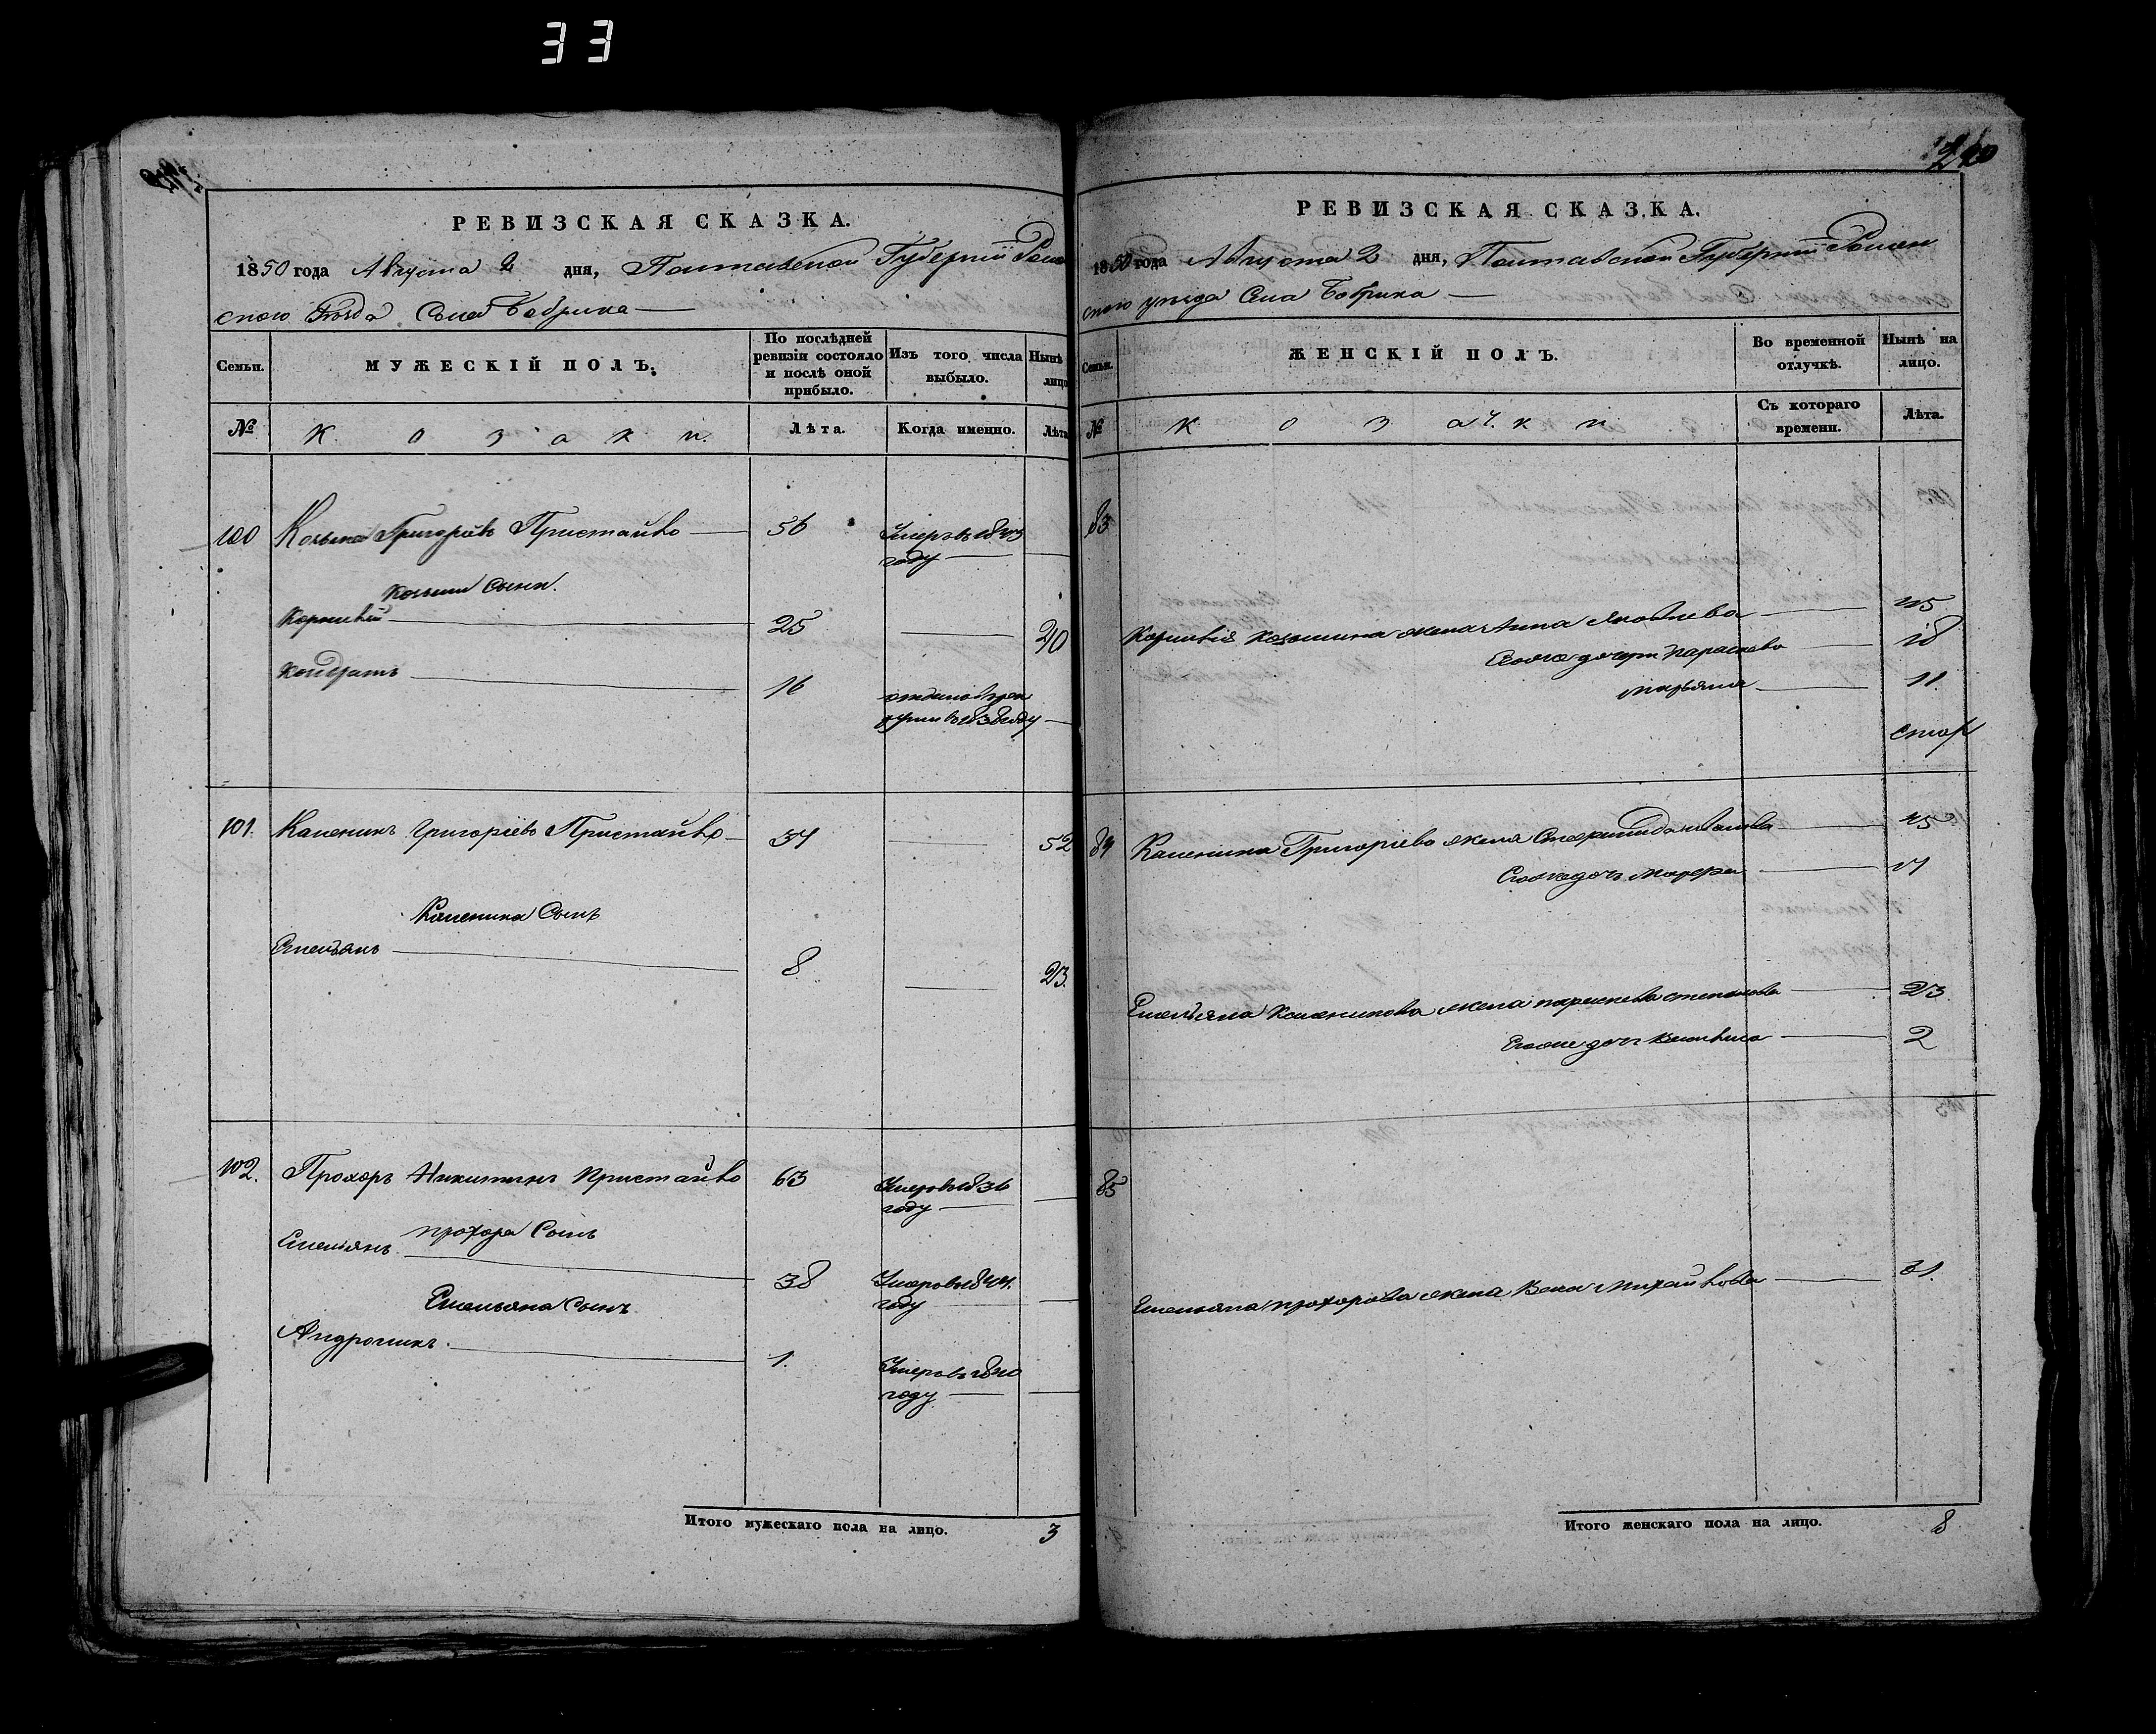 33
РЕВИЗСКАЯ СКАЗКА.
1850 года Августа 2 дня, Полтавской Губерніи Ромен
ского уѣзда Села Бобрика
Семьи. МУЖЕСКІЙ ПОЛЪ. По послѣдней ревизіи состояло и послѣ оной прибыло. Изъ того числа выбыло. Нынѣ лицо
№ Козаки. Лѣта. Когда именно. Лѣта
100 Козьма Григорьевъ Пристайко 56 Умеръ въ 1843
году
Козьмы Сыни.
Корнѣвій 25 40
Кондратъ 16
въ 1838 году
101. Каленикъ Григоріевъ Пристайко 37 52
Каленика Сынъ
Емельянъ 8 23.
102. Прохоръ Никитинъ Пристайко 63 Умеръ въ 1836
году
прохора Сынъ
Емельянъ 38 Умеръ въ 1844.
году
Емельяна Сынъ
Андроникъ. 1. Умеръ въ 1840
году
Итого мужескаго пола на лицо. 3
РЕВИЗСКАЯ СКАЗКА.
1850 года Августа 2 дня, Полтавской Губерніи Ромен
ского уѣзда Села Бобрика
Семьи. ЖЕНСКІЙ ПОЛЪ. Во временной отлучкѣ. Нынѣ на лицо.
№ Козачки Съ котораго времени. Лѣта.
83
Корнивія Козьмина жена Анна Яковлева 45
Егоже дочери Параскева 18
Марьяна 11.
84 Каленика Григоріева жена Степанида 45
Егоже дочь Марфа 17
Емельяна Каленикова жена параскева степанова 23.
Егоже дочь 2
85
Емельяна прохорова жена Михайлова 31.
Итого женскаго пола на лицо. 8